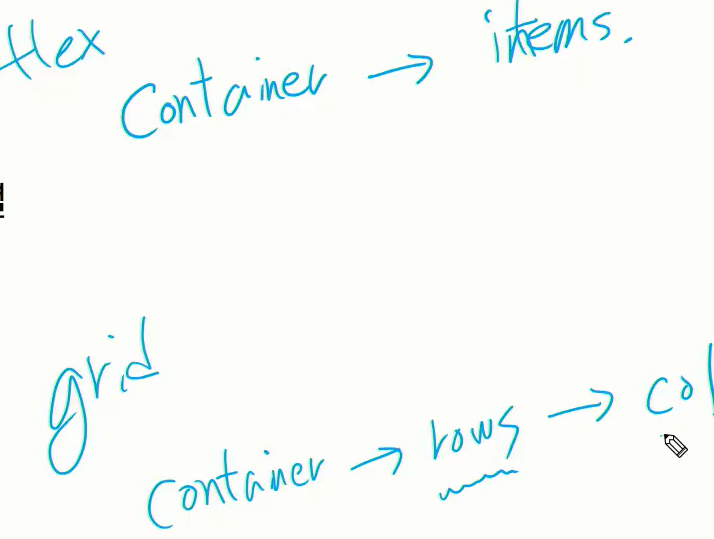 flex
Container → items.
grid
Container → rows → col